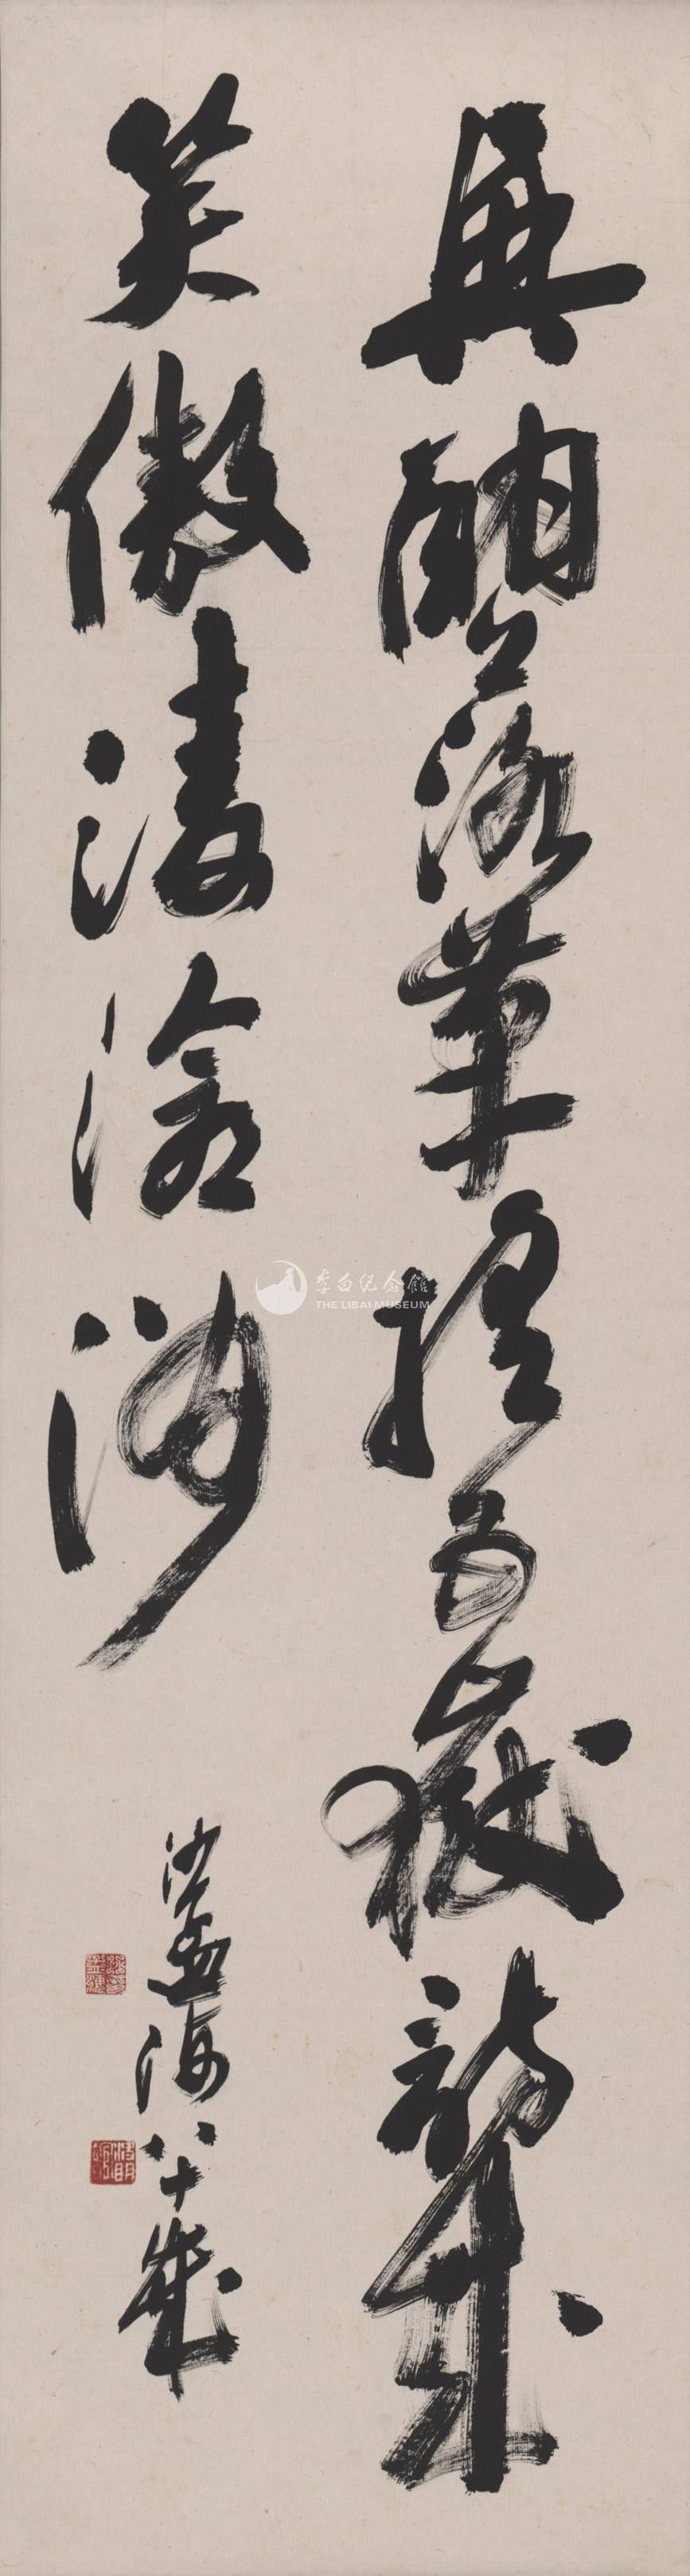 興酣落筆搖五嶽詩成
笑傲凌滄洲
沙孟海八十歲
李白纪念馆
THE LIBAI MUSEUM